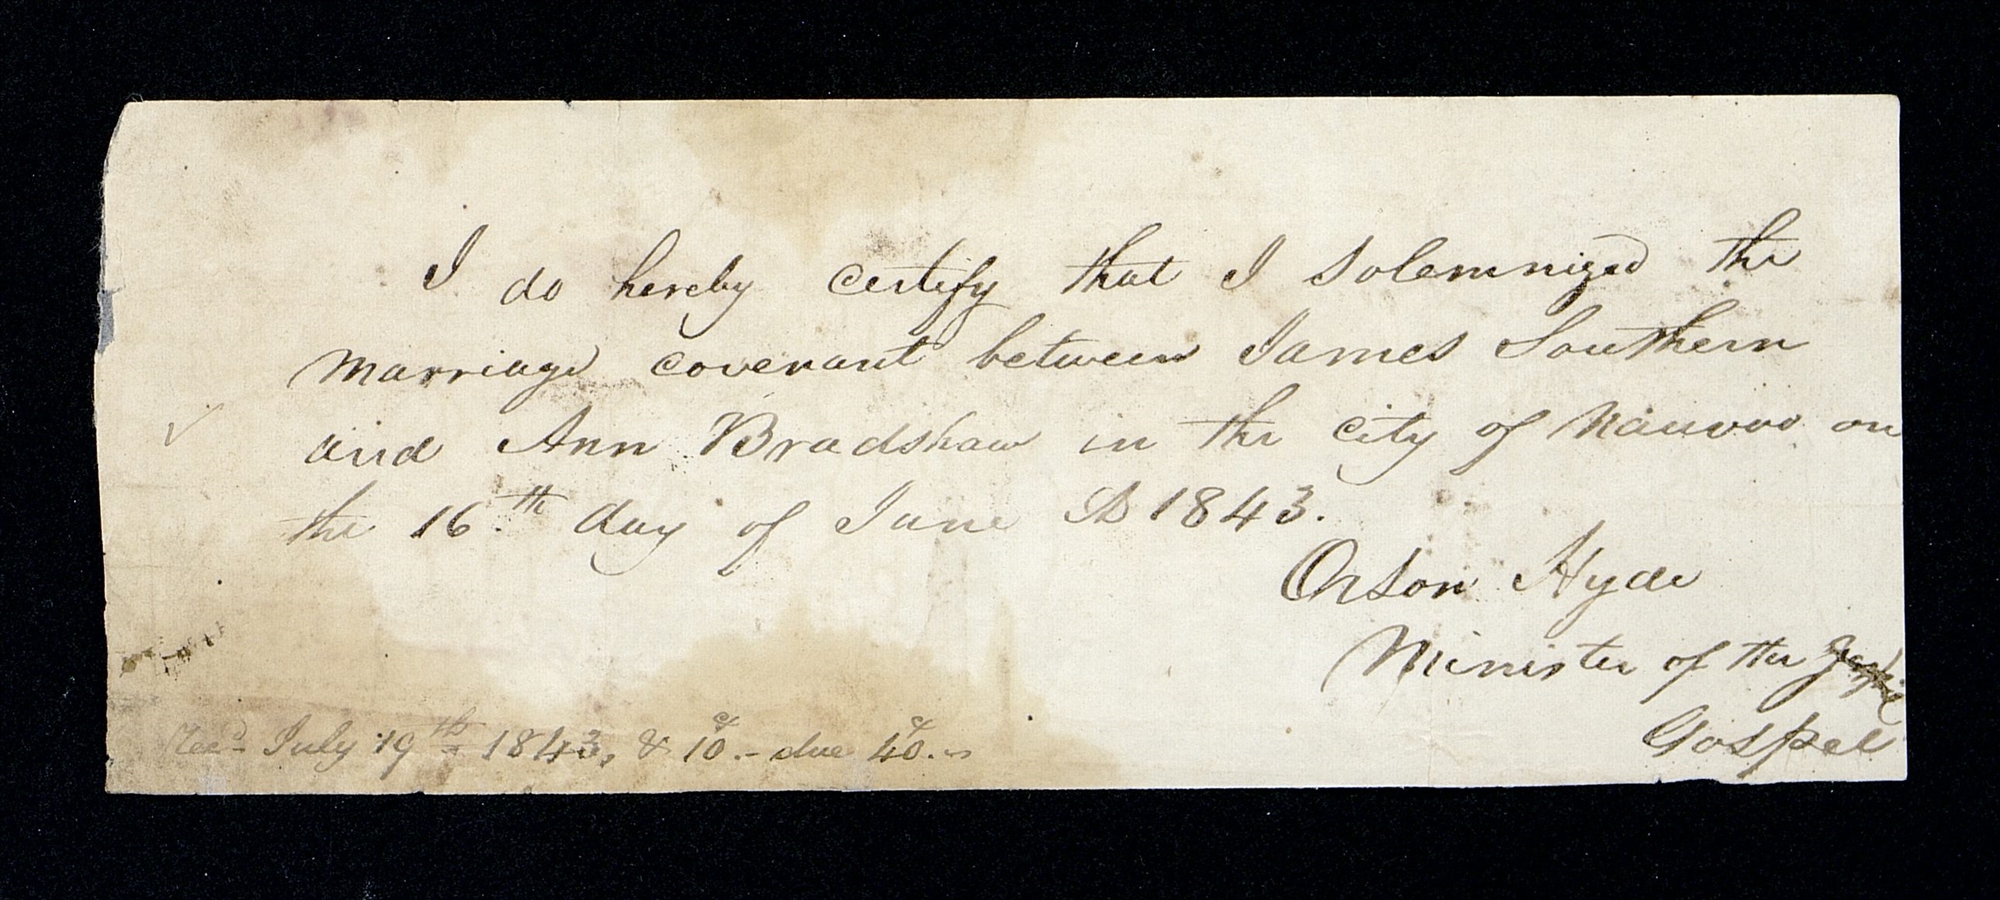 I do hereby certify that I solemnized the
marriage covenant between James Southern
and Ann Bradshaw in the city of Nauvoo on
the 16.th day of June AD 1843.
Orson Hyde
Minister of the
Gospel
Recd July 19th 1843, & 10.c - due 40.c